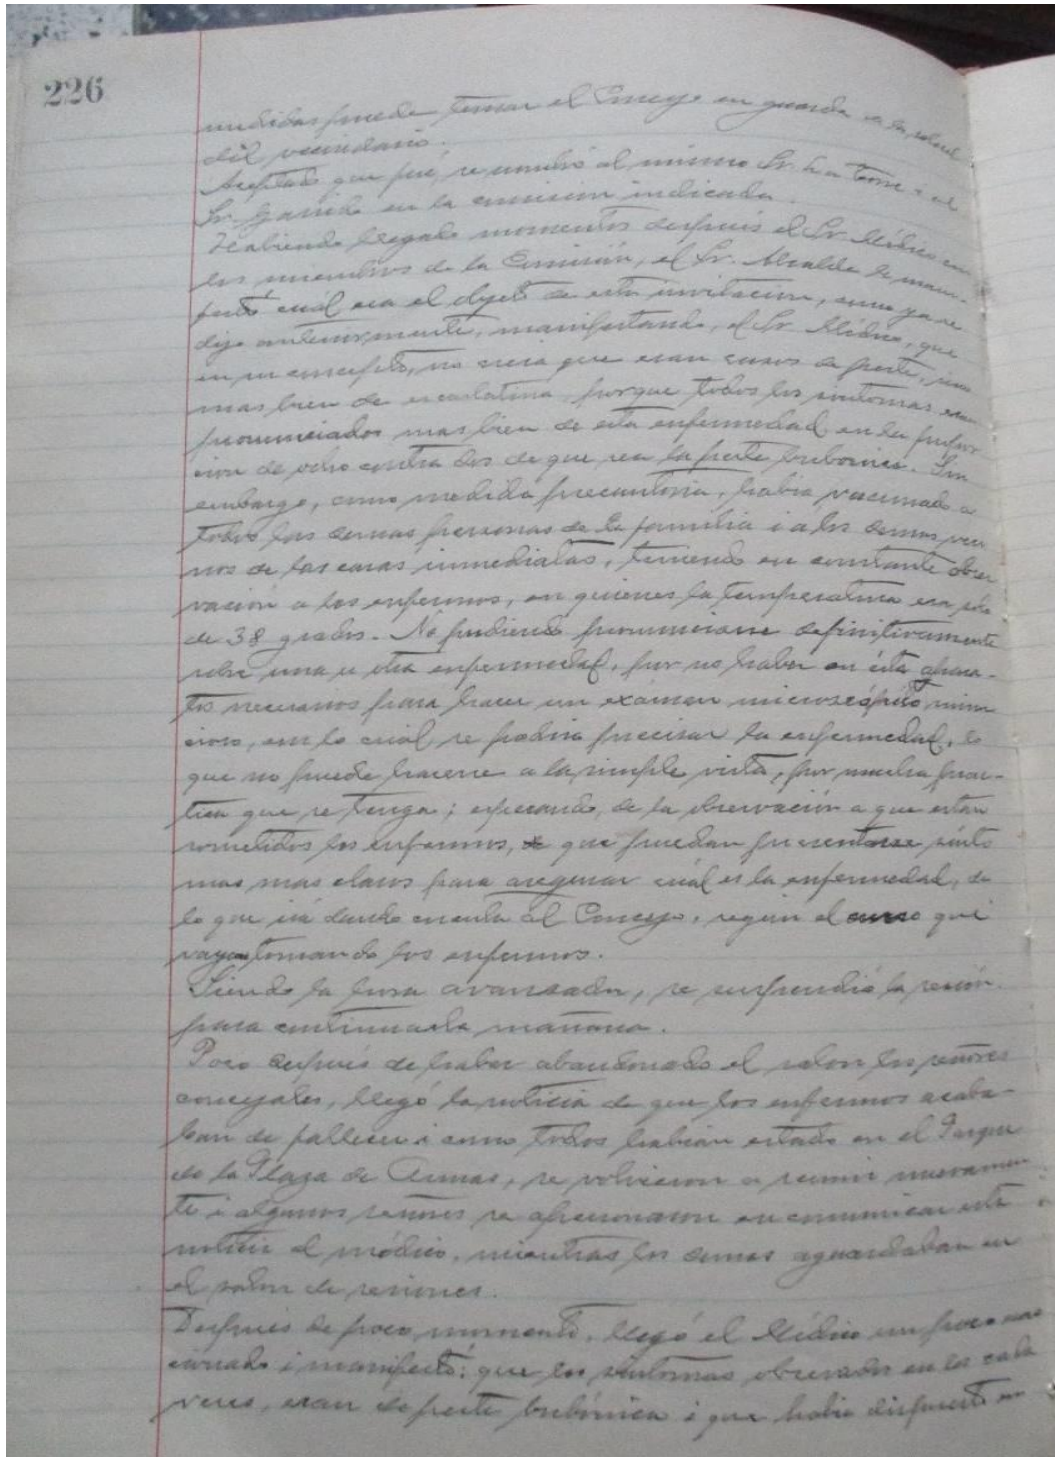 226
medidas puede tomar el Concejo en guarda de la salud
del vecindario.
Aceptado que fué, se nombró al mismo Sr. La Torre i al
Sr. Garrido en la comisión indicada.
Habiendo llegado momentos después el Sr. Médico con
los miembros de la Comisión, el Sr. Alcalde le mani-
festó cual era el objeto de esta invitación, como ya se
dijo anteriormente, manifestando, el Sr. Médico, que
en su concepto, no creia que eran casos de peste, sino
mas bien de escarlatina, porque todos los sintomas eran
pronunciados mas bien de esta enfermedad en la propor
cion de ocho contra dos de que sea la peste bubónica. Sin
embargo, como medida precautoria, habia vacunado a
todos las demas personas de la familia i a los demas veci
nos de las casas inmediatas, teniendo en constante obser
vación a los enfermos, en quienes la temperatura era sólo
de 38 grados. No pudiendo pronunciarse definitivamente
sobre una u otra enfermedad, por no haber en ésta apara-
tos necesarios para hacer un exámen microscópico minu
cioso, con lo cual se podria precisar la enfermedad, lo
que no puede hacerse a la simple vista, por mucha prac-
tica que se tenga; esperando, de la observación a que estan
sometidos los enfermos, que puedan presentarse sínto
mas mas claros para asegurar cuál es la enfermedad, de
lo que irá dando cuenta al Concejo, según el curso que
vayan tomando los enfermos.
Siendo la hora avanzada, se suspendió la sesión
para continuarla mañana.
Poco después de haber abandonado el salon los señores
concejales, llegó la noticia de que los enfermos acaba-
ban de fallecer i como todos habian estado en el Parque
de la Plaza de Armas, se volvieron a reunir nuevamen
te i algunos señores se apresuraron en comunicar esta
noticia al médico, mientras los demas aguardaban en
el salon de sesiones.
Después de poco momento, llegó el Médico un poco
i manifestó: que los síntomas observados en los cadá
veres, eran de peste bubónica i que habia dispuesto